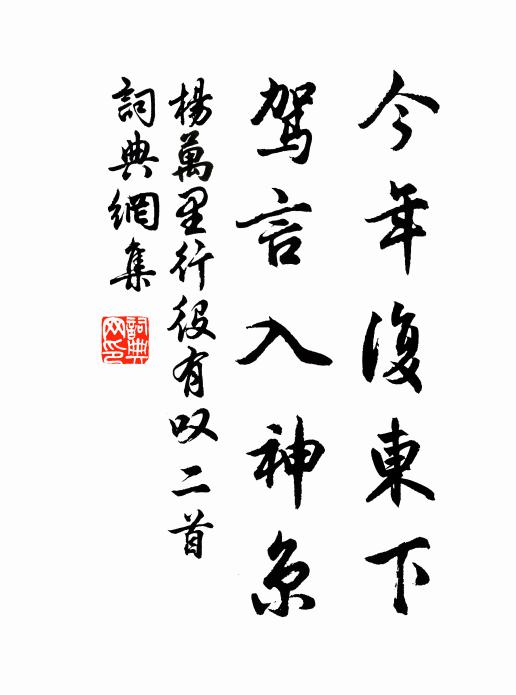 今年復東下
驾言入神京
楊萬里行役有叹二首
詞典網集
詞典
网印